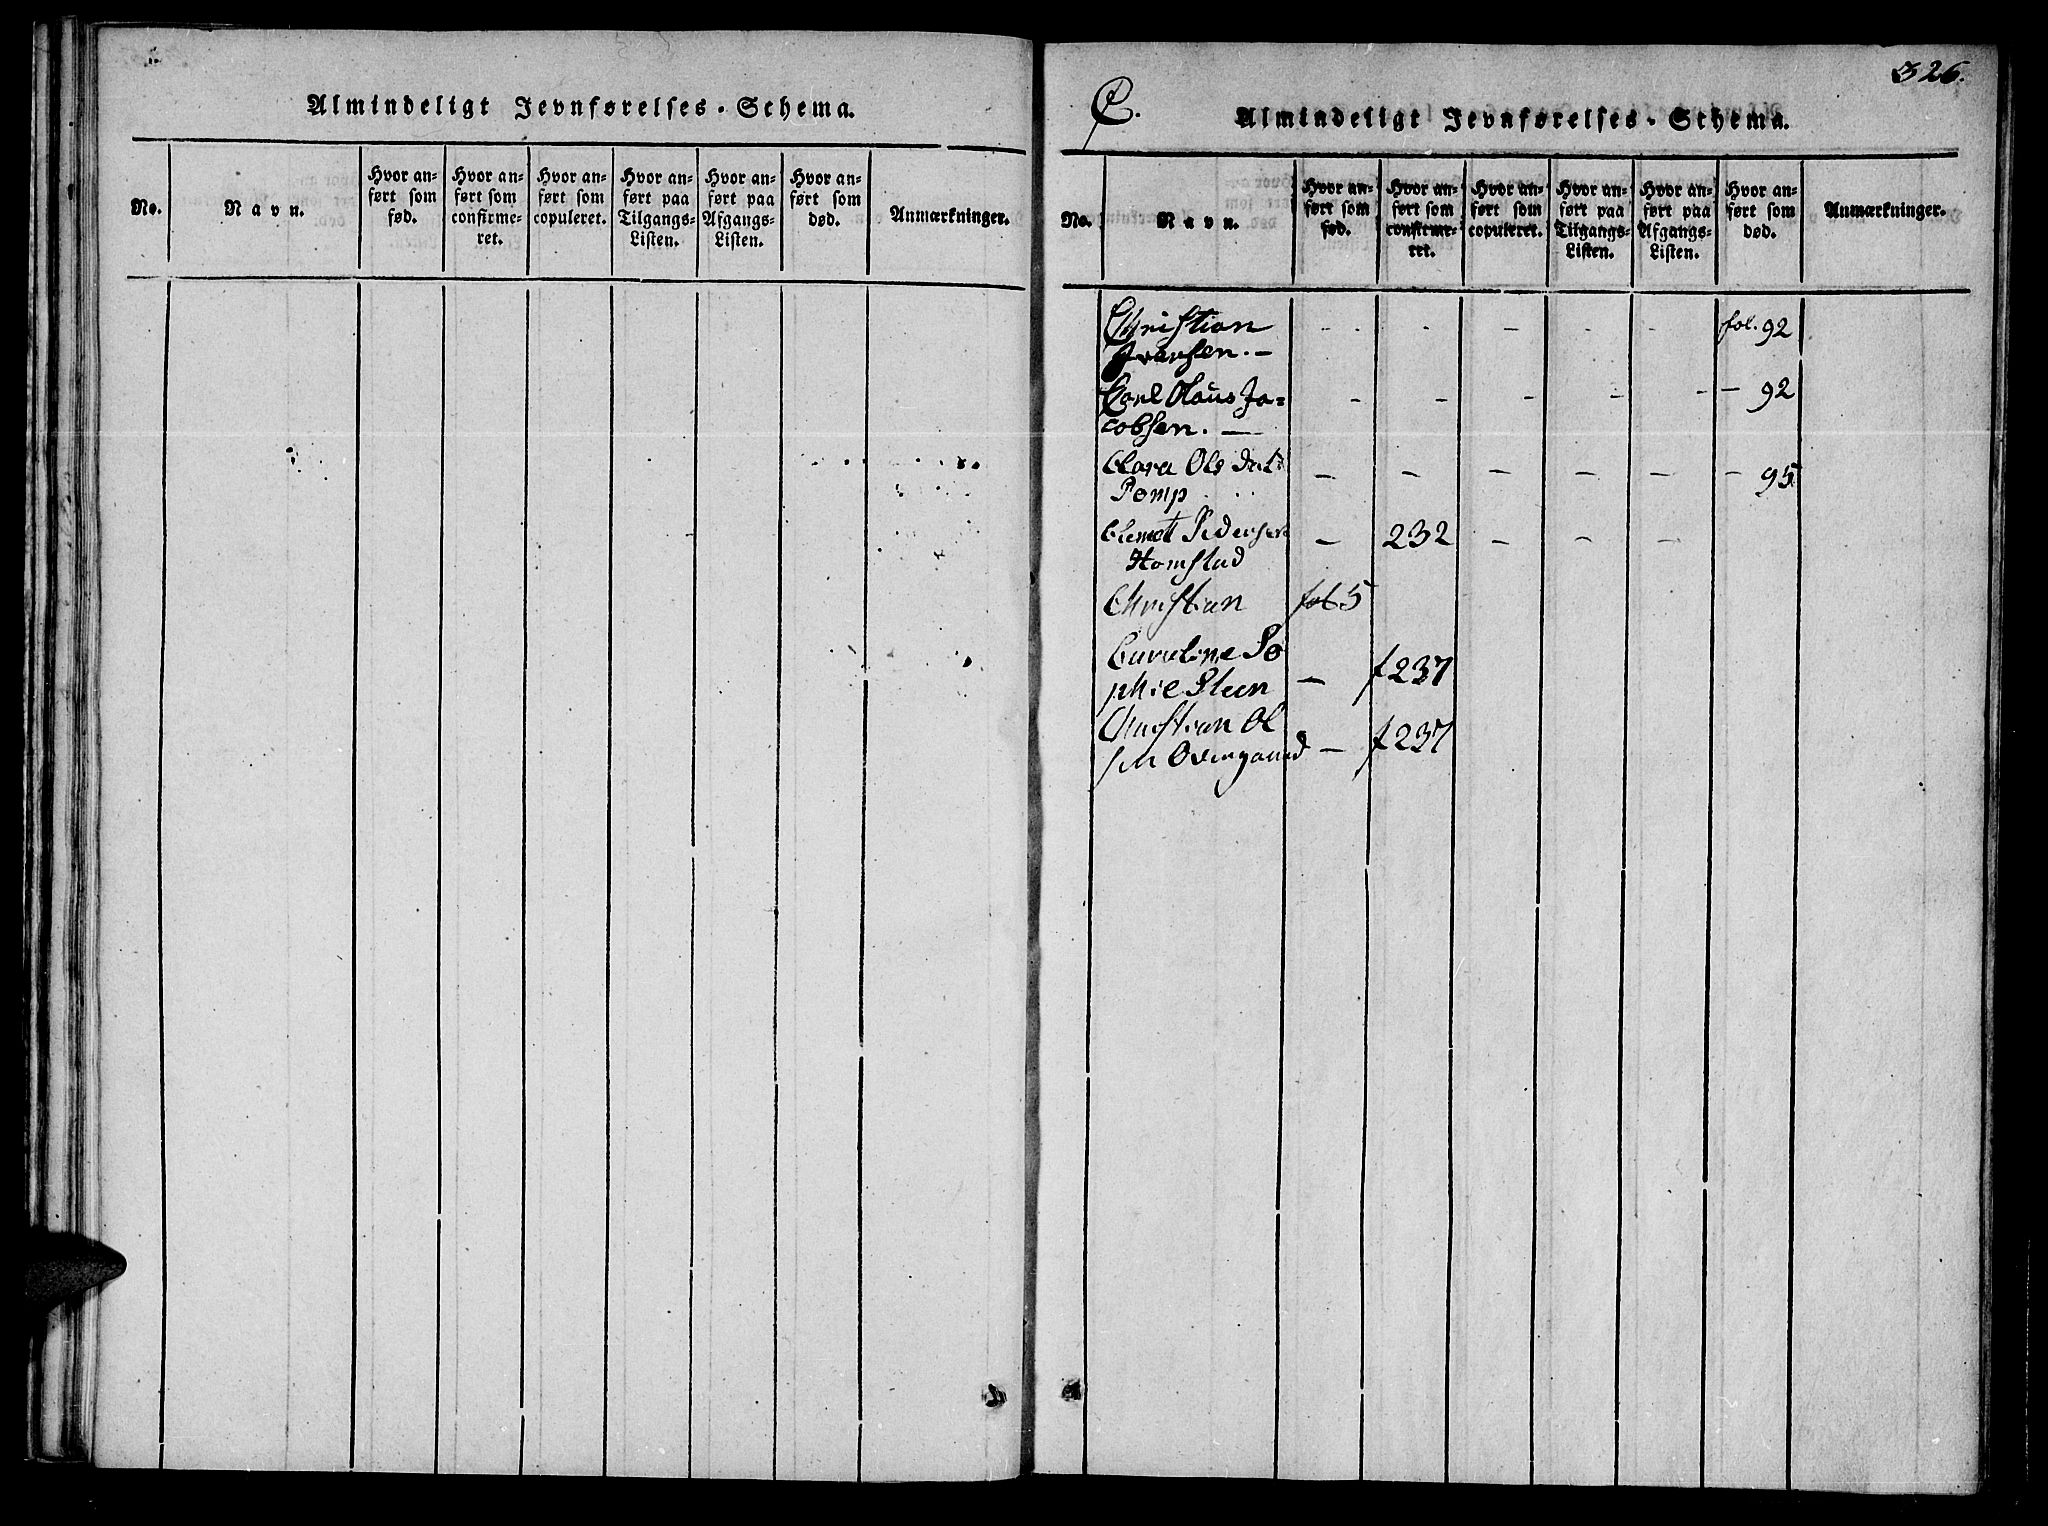 Almindeligt Jevnførelses-Schema.
No.
Navn.
Hvor an-
ført som
fød.
Hvor an-
ført som
confirme-
ret.
Hvor an-
ført som
copuleret.
Hvor an-
ført paa
Tilgangs-
Listen.
Hvor an-
ført paa
Afgangs-
Listen.
Hvor an-
ført som
død.
Anmærkninger.
326.
C.
Almindeligt Jevnførelses-Schema.
No.
Navn.
Hvor an-
ført som
fød.
Hvor an-
ført som
confirme-
ret.
Hvor an-
ført som
copuleret.
Hvor an-
ført paa
Tilgangs-
Listen.
Hvor an-
ført paa
Afgangs-
Listen.
Hvor an-
ført som
død.
Anmærkninger.
Christian - - - - - fol. 92
Iversen. -
Carl Olaus Ja= - - - - - - 92
cobsen. -
Clara Ols Dat - - - - - - 95
Pomp
Pedersen - 232 - - -
Homstad
Christian fol 5
Caroline So
phie Steen - f 237
Christian Ol
sen Overgaard - f 237